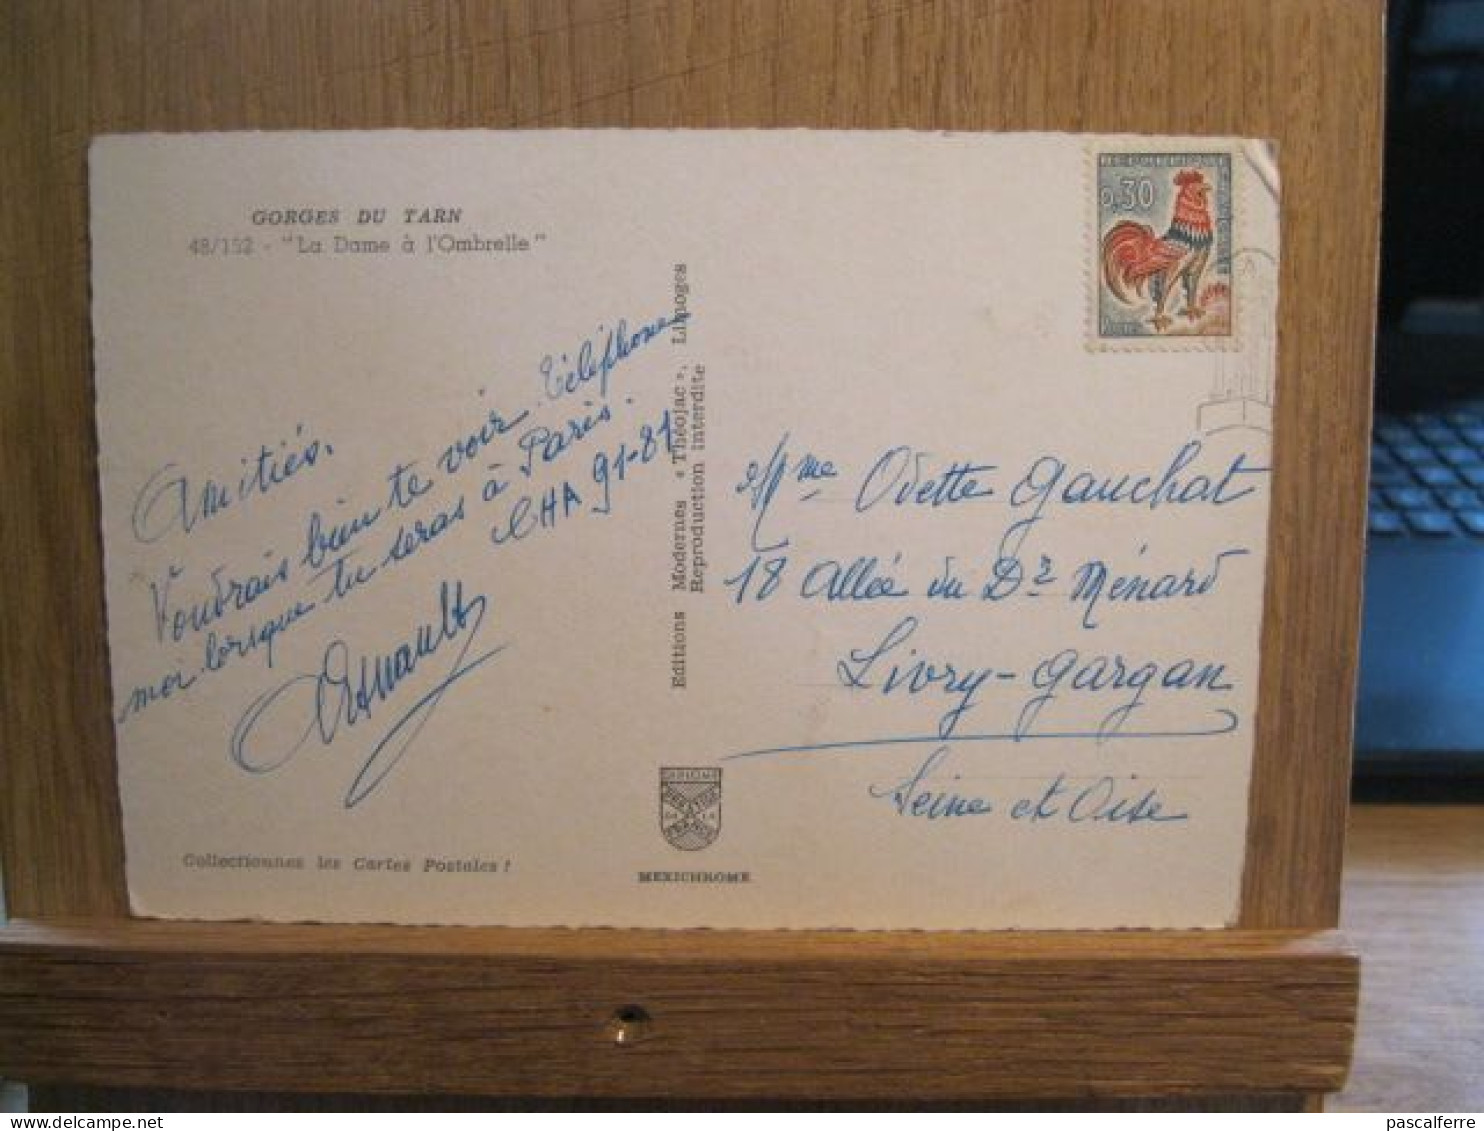 GORGES DU TARN
48/152 - "La Dame à l'Ombrelle"
Amitiés.
Voudrais bien te voir. Téléphone
moi lorsque tu seras à Paris.
CHA 91-81
Arnault
Collectionnez les Cartes Postales !
Editions Modernes « Théojac », Limoges
Reproduction Interdite
MEXICHROME
0,30
Mme Odette Gauchat
18 Allée du Dr Ménard
Livry-Gargan
Seine et Oise
pascalferre